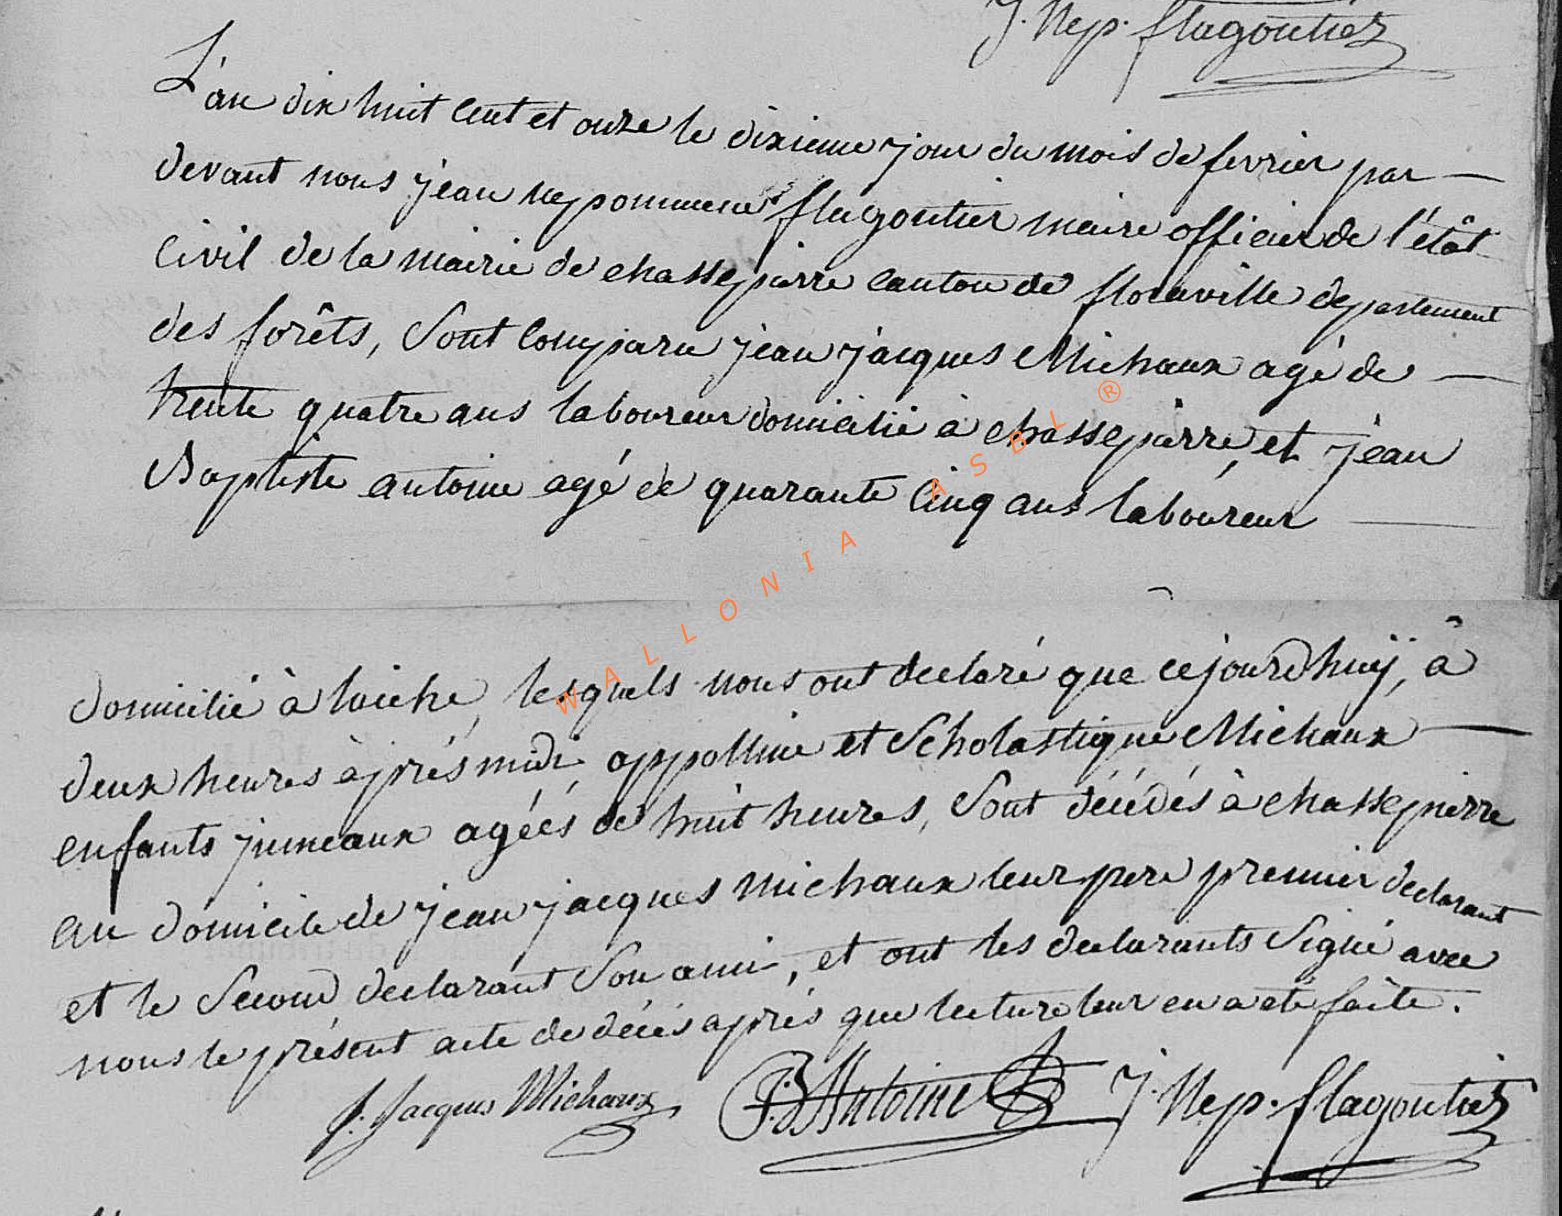 J. Nep. flagoutiez
L'an dix huit cent et onze le dixieme jour du mois de fevrier par
devant nous jean nepommene flagoutier maire officier de l'êtât
Civil de la mairie de chassepierre canton de floraville departement
des forêts, Sont comparu jean jacques Michaux agé de
trente quatre ans laboureur domicilié à chassepierre, et jean
Baptiste antoine agé de quarante cinq ans laboureur
WALLONIA ASBL ®
domicilié à laiche, lesquels nous ont declaré que cejourdhuÿ, à
deux heures àprés midi appolline et Scholastique Michaux
enfants jumeaux agéés de huit heures, Sont décédés à chassepierre
au domicile de jean jacques michaux leur pere premier declarant
et le Second declarant Son ami, et ont les declarants Signé avec
nous le présent acte de décés aprés que lecture leur en a eté faite.
J. Jacques Michaux J:B Antoine J. Nep. flagoutiez